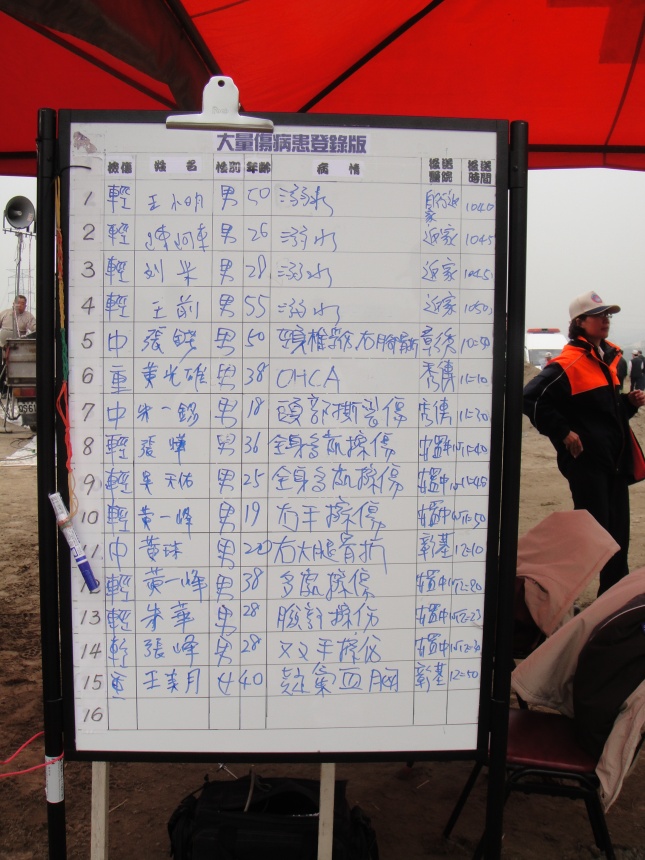 大量傷病患登錄版
檢傷 姓名 性別 年齡 病情 後送醫院 後送時間
1 輕 王小明 男 50 溺水 自行返家 1040
2 輕 男 26 溺水 返家 1045
3 輕 刘米 男 28 溺水 返家 1045
4 輕 王前 男 55 溺水 返家 1050
5 中 張 男 50 頸椎 右胸 10:40
6 重 黃光雄 男 38 OHCA 秀傳 11:10
7 中 朱一錫 男 18 頭部撕裂傷 秀傳 11:30
8 輕 張 男 36 全身多處擦傷 安置中心 11:40
9 輕 吳天佑 男 25 全身多處擦傷 安置中心 11:45
10 輕 黃一峰 男 19 右手擦傷 安置中心 11:50
11 中 黃珠 男 右大腿骨折 彰基 12:10
12 輕 黃一峰 男 38 多處擦傷 安置中心 12:20
13 輕 朱華 男 28 臉部擦伤 安置中心 12:23
14 輕 張峰 男 28 双手擦伤 安置中心 12:30
15 重 王美月 女 40 氣血胸 彰基 12:40
16